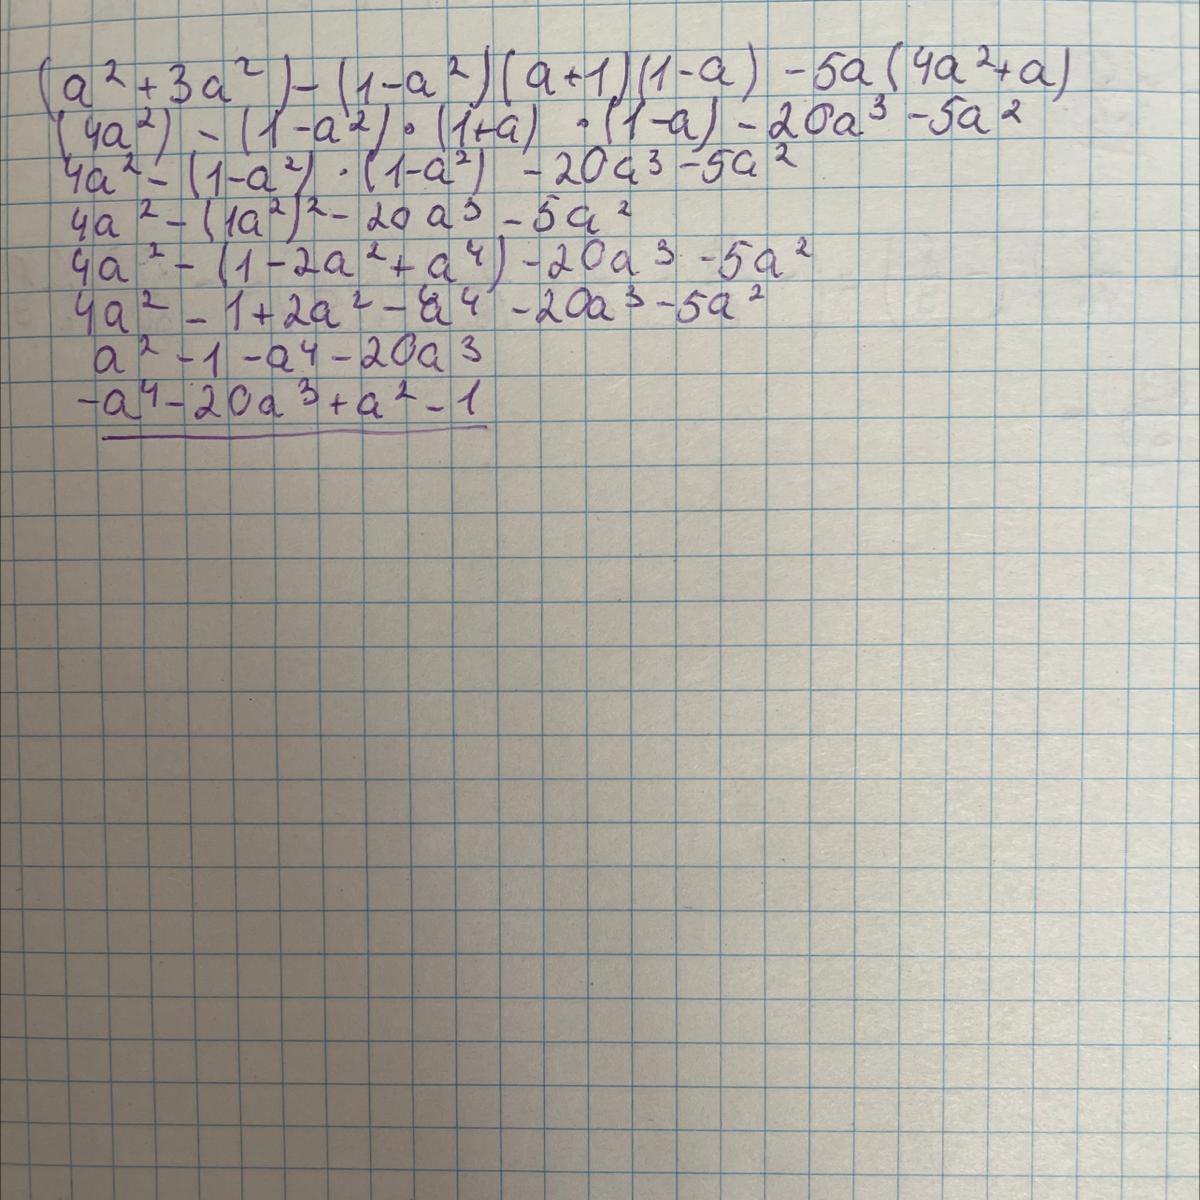 (a² + 3a²) - (1-a²)(a+1)(1-a) - 5a(4a²+a)
(4a²) - (1-a²) · (1+a) · (1-a) - 20a³ - 5a²
4a² - (1-a²) · (1-a²) - 20a³ - 5a²
4a² - (1a²)² - 20a³ - 5a²
4a² - (1-2a²+a⁴) - 20a³ - 5a²
4a² - 1 + 2a² - a⁴ - 20a³ - 5a²
a² - 1 - a⁴ - 20a³
-a⁴ - 20a³ + a² - 1